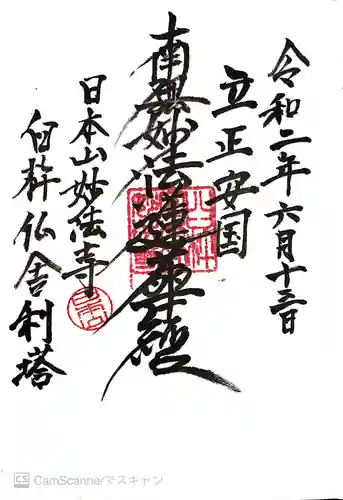 令和二年六月十三日
立正安国
南無妙法蓮華経
日本山妙法寺
仏舎利塔
CS CamScannerでスキャン